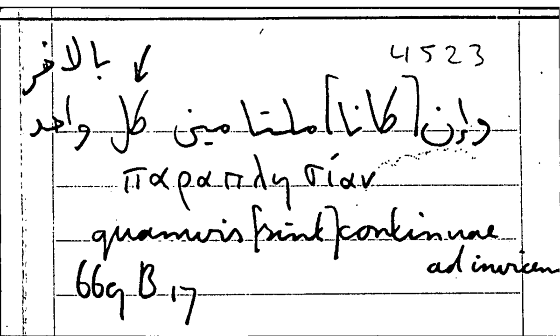 4523
وإن [كانا] ملتامين كل واحد
بالاخر
παραπλησίαν
quamvis [sint] continuae
ad invicem
669 B 17